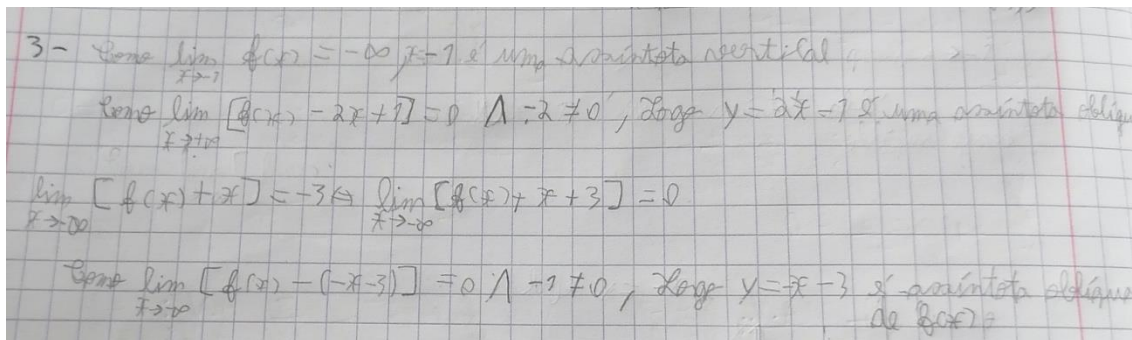 3- Como lim f(x) = -∞, x=1 é uma assíntota vertical.
x→1
Como lim [f(x) - 2x + 1] = 0 Λ -2 ≠ 0, Logo y = 2x - 1 é uma assíntota oblíqu
x→+∞
lim [f(x) + x] = -3 ⇔ lim [f(x) + x + 3] = 0
x→-∞ x→-∞
Como lim [f(x) - (-x-3)] = 0 Λ -1 ≠ 0, Logo y = -x - 3 é assíntota oblíqua
x→-∞ de f(x).